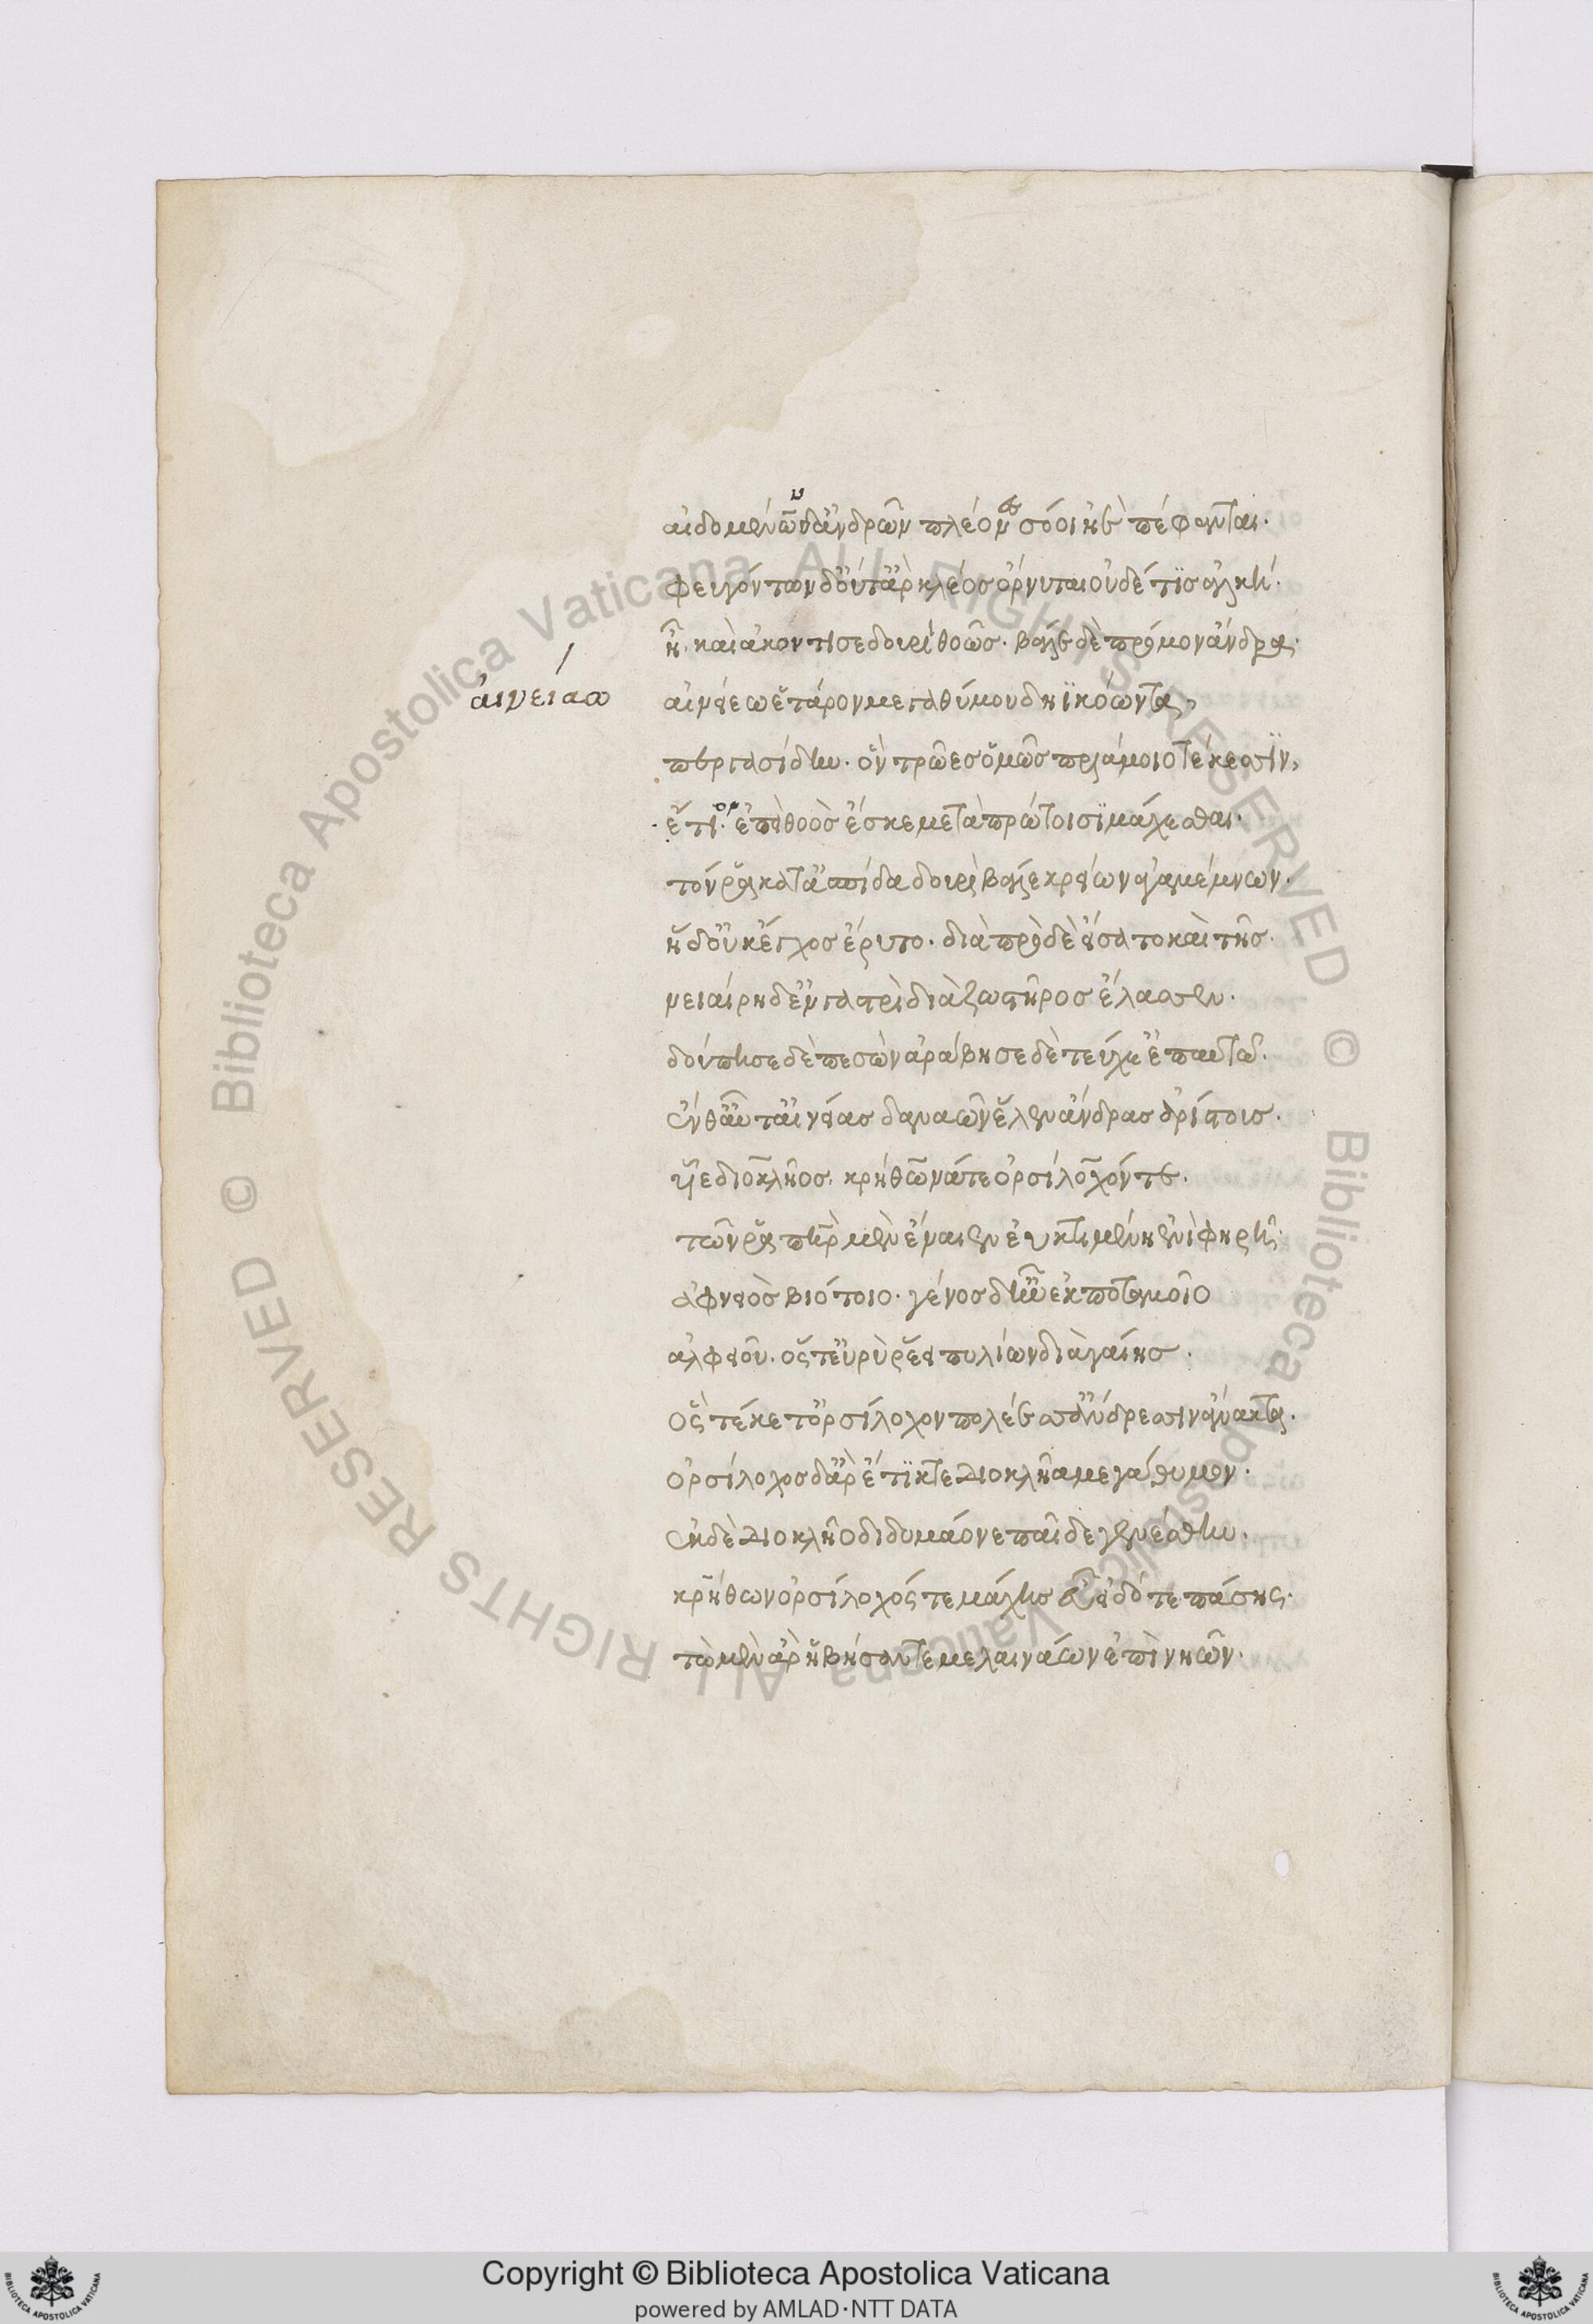 αἰδομένων δ' ἀνδρῶν πλέονες σόοι ἠὲ πέφανται.
φευγόντων δ' οὔτ' ἂρ κλέος ὄρνυται οὐδέ τις ἀλκή.
ἦ. καὶ ἀκόντισε δουρὶ θοῶς. βάλε δὲ πρόμον ἄνδρα.
ἀινείαο
αἰνείεω ἕταρον μεγαθύμου δηϊκόωντα,
περγασίδην. ὃν τρῶες ὁμῶς πριάμοιο τέκεσσιν,
ἔτι. ἐπεὶ θοὸς ἔσκε μετὰ πρώτοισι μάχεσθαι.
τόν ῥα κατ' ἀσπίδα δουρὶ βάλε κρείων ἀγαμέμνων.
ἣ δ' οὐκ ἔγχος ἔρυτο. διὰ πρὸ δὲ εἴσατο καὶ τῆς.
νειαίρη δ' ἐν γαστρὶ διὰ ζωστῆρος ἔλασσεν.
δούπησε δὲ πεσὼν ἀράβησε δὲ τεύχε' ἐπ' αὐτῶ.
ἔνθ' αὖτ' αἰνείας δαναῶν ἕλεν ἄνδρας ἀρίστους.
υἷε διοκλῆος. κρήθωνά τε ὀρσίλοχόν τε.
τῶν ῥα πατὴρ μὲν ἔναιεν ἐυκτιμένη ἐνὶ φηρῆ.
ἀφνειὸς βιότοιο. γένος δ' ἦν ἐκ ποταμοῖο
ἀλφειοῦ. ὅς τ' εὐρὺ ῥέει πυλίων διὰ γαίης.
ὃς τέκετ' ὀρσίλοχον πολέεσσ' ἄνδρεσσιν ἄνακτα.
ὀρσίλοχος δ' ἂρ ἔτικτε διοκλῆα μεγάθυμον.
ἐκ δὲ διοκλῆος διδυμάονε παῖδε γενέσθην.
κρήθων ὀρσίλοχός τε μάχης εὖ εἰδότε πάσης.
τὼ μὲν ἂρ ἡβήσαντε μελαινάων ἐπὶ νηῶν.
Copyright © Biblioteca Apostolica Vaticana
powered by AMLAD·NTT DATA